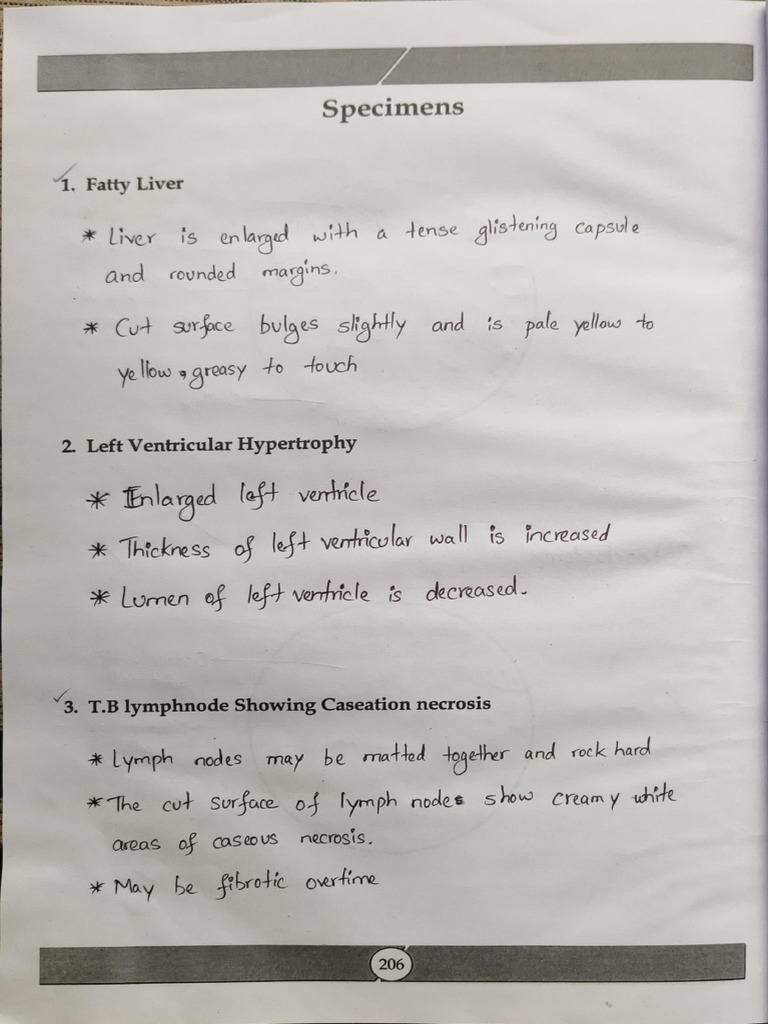 Specimens
1. Fatty Liver
* Liver is enlarged with a tense glistening capsule
and rounded margins.
* Cut surface bulges slightly and is pale yellow to
yellow, greasy to touch
2. Left Ventricular Hypertrophy
* Enlarged left ventricle
* Thickness of left ventricular wall is increased
* Lumen of left ventricle is decreased.
3. T.B lymphnode Showing Caseation necrosis
* Lymph nodes may be matted together and rock hard
* The cut surface of lymph nodes show creamy white
areas of caseous necrosis.
* May be fibrotic overtime
206